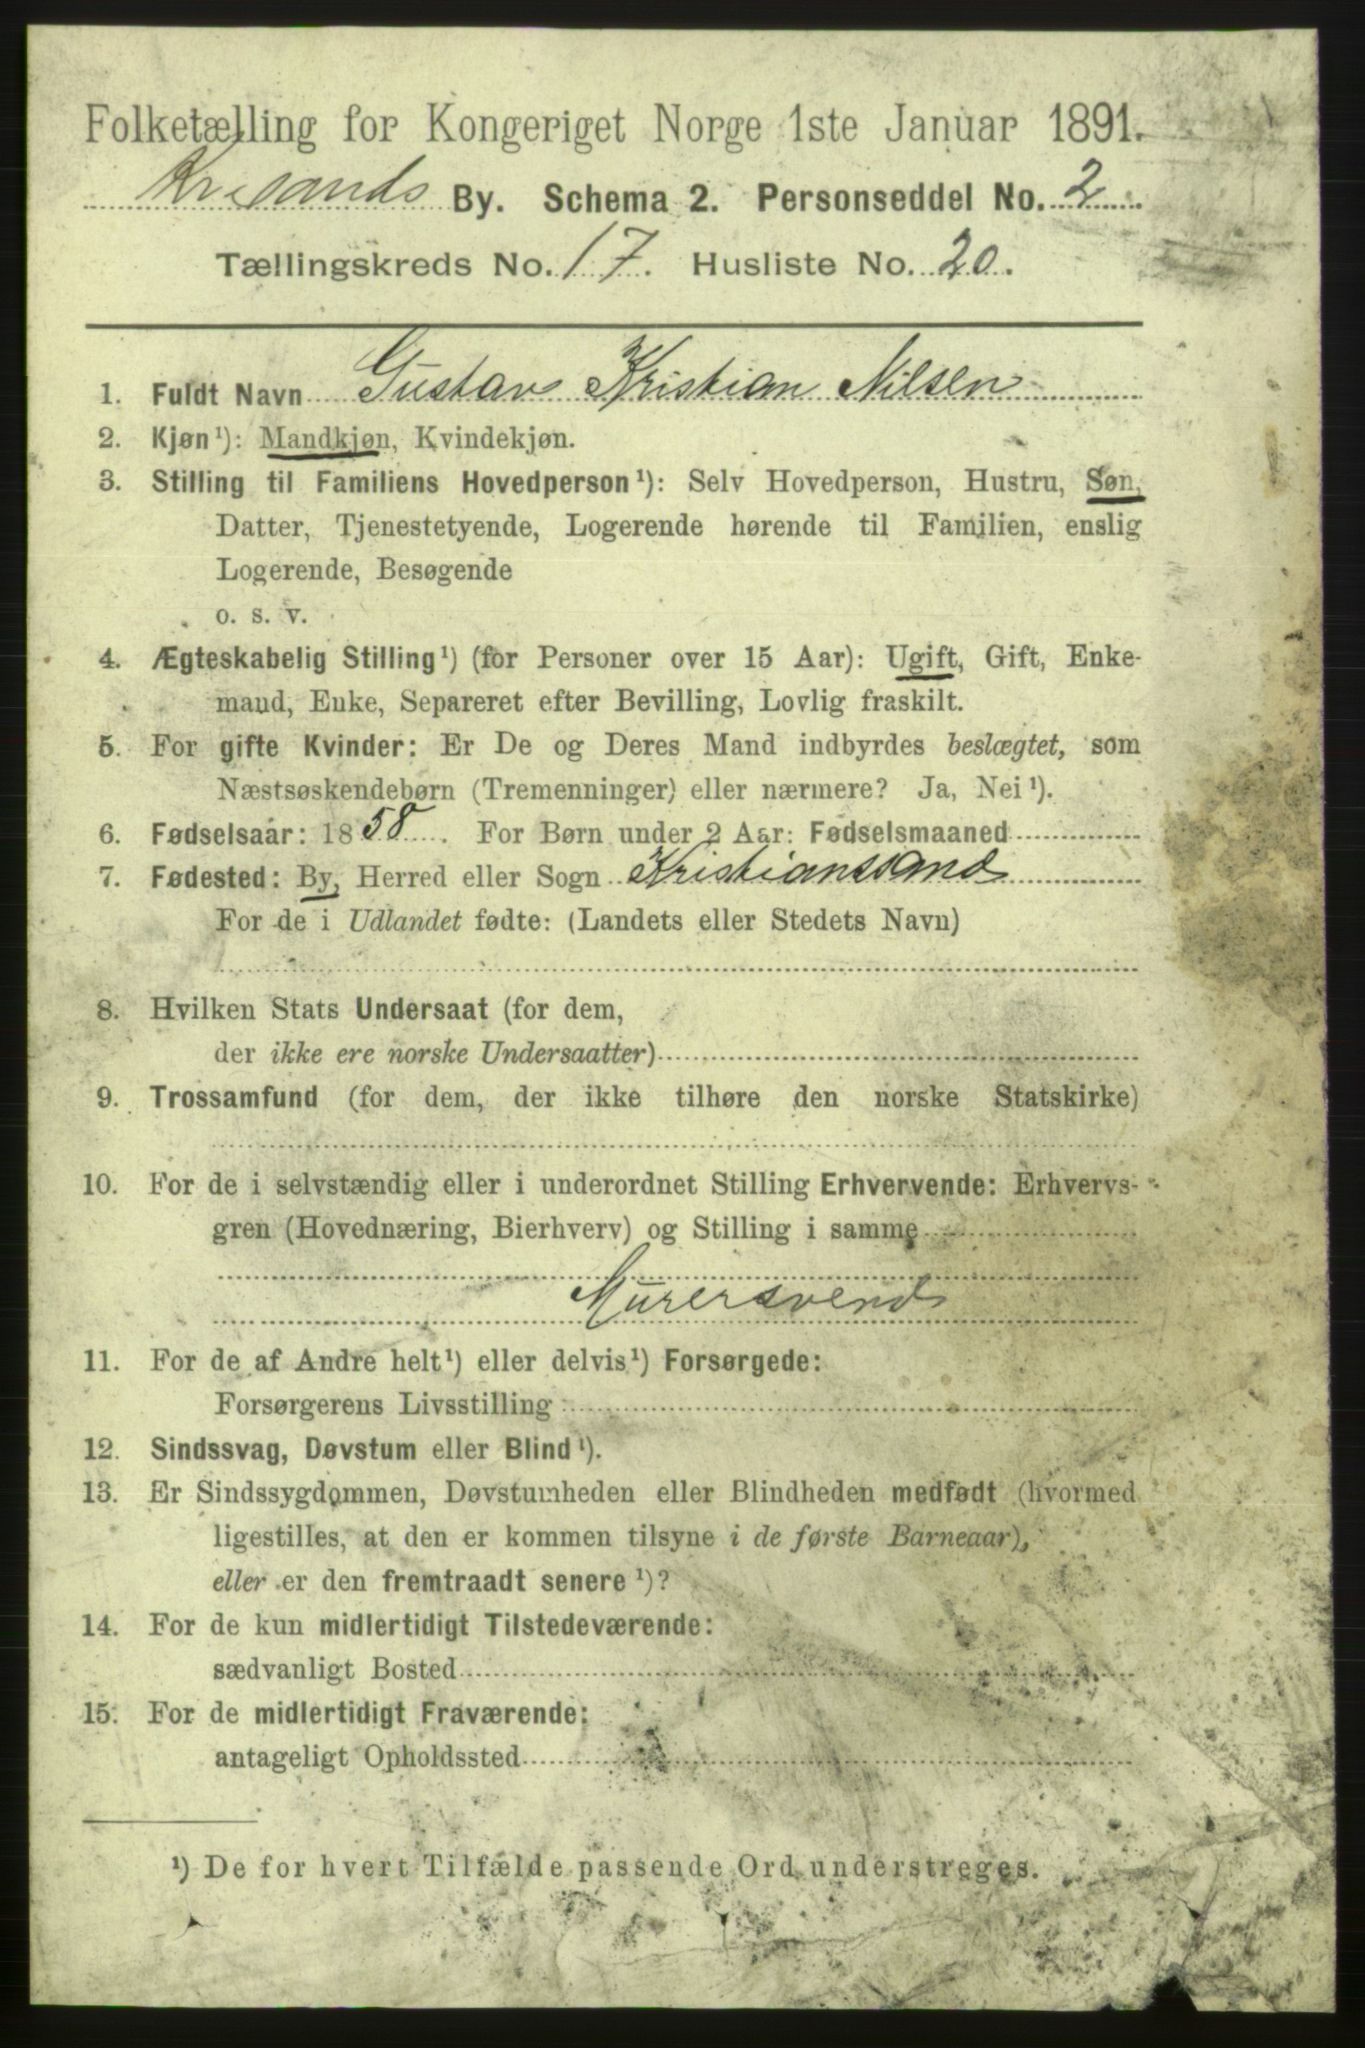 Folketælling for Kongeriget Norge 1ste Januar 1891.
Krsands By. Schema 2. Personseddel No. 2
Tællingskreds No. 17. Husliste No. 20.
1. Fuldt Navn Gustav Kristian Nilsen
2. Kjøn¹): Mandkjøn, Kvindekjøn.
3. Stilling til Familiens Hovedperson¹): Selv Hovedperson, Hustru, Søn,
Datter, Tjenestetyende, Logerende hørende til Familien, enslig
Logerende, Besøgende
o. s. v.
4. Ægteskabelig Stilling¹) (for Personer over 15 Aar): Ugift, Gift, Enke-
mand, Enke, Separeret efter Bevilling, Lovlig fraskilt.
5. For gifte Kvinder: Er De og Deres Mand indbyrdes beslægtet, som
Næstsøskendebørn (Tremenninger) eller nærmere? Ja, Nei¹).
6. Fødselsaar: 1858. For Børn under 2 Aar: Fødselsmaaned
7. Fødested: By, Herred eller Sogn Kristianssand
For de i Udlandet fødte: (Landets eller Stedets Navn)
8. Hvilken Stats Undersaat (for dem,
der ikke ere norske Undersaatter)
9. Trossamfund (for dem, der ikke tilhøre den norske Statskirke)
10. For de i selvstændig eller i underordnet Stilling Erhvervende: Erhvervs-
gren (Hovednæring, Bierhverv) og Stilling i samme
Murersvend
11. For de af Andre helt¹) eller delvis¹) Forsørgede:
Forsørgerens Livsstilling
12. Sindssvag, Døvstum eller Blind¹).
13. Er Sindssygdommen, Døvstumheden eller Blindheden medfødt (hvormed
ligestilles, at den er kommen tilsyne i de første Barneaar),
eller er den fremtraadt senere¹)?
14. For de kun midlertidigt Tilstedeværende:
sædvanligt Bosted
15. For de midlertidigt Fraværende:
antageligt Opholdssted
¹) De for hvert Tilfælde passende Ord understreges.